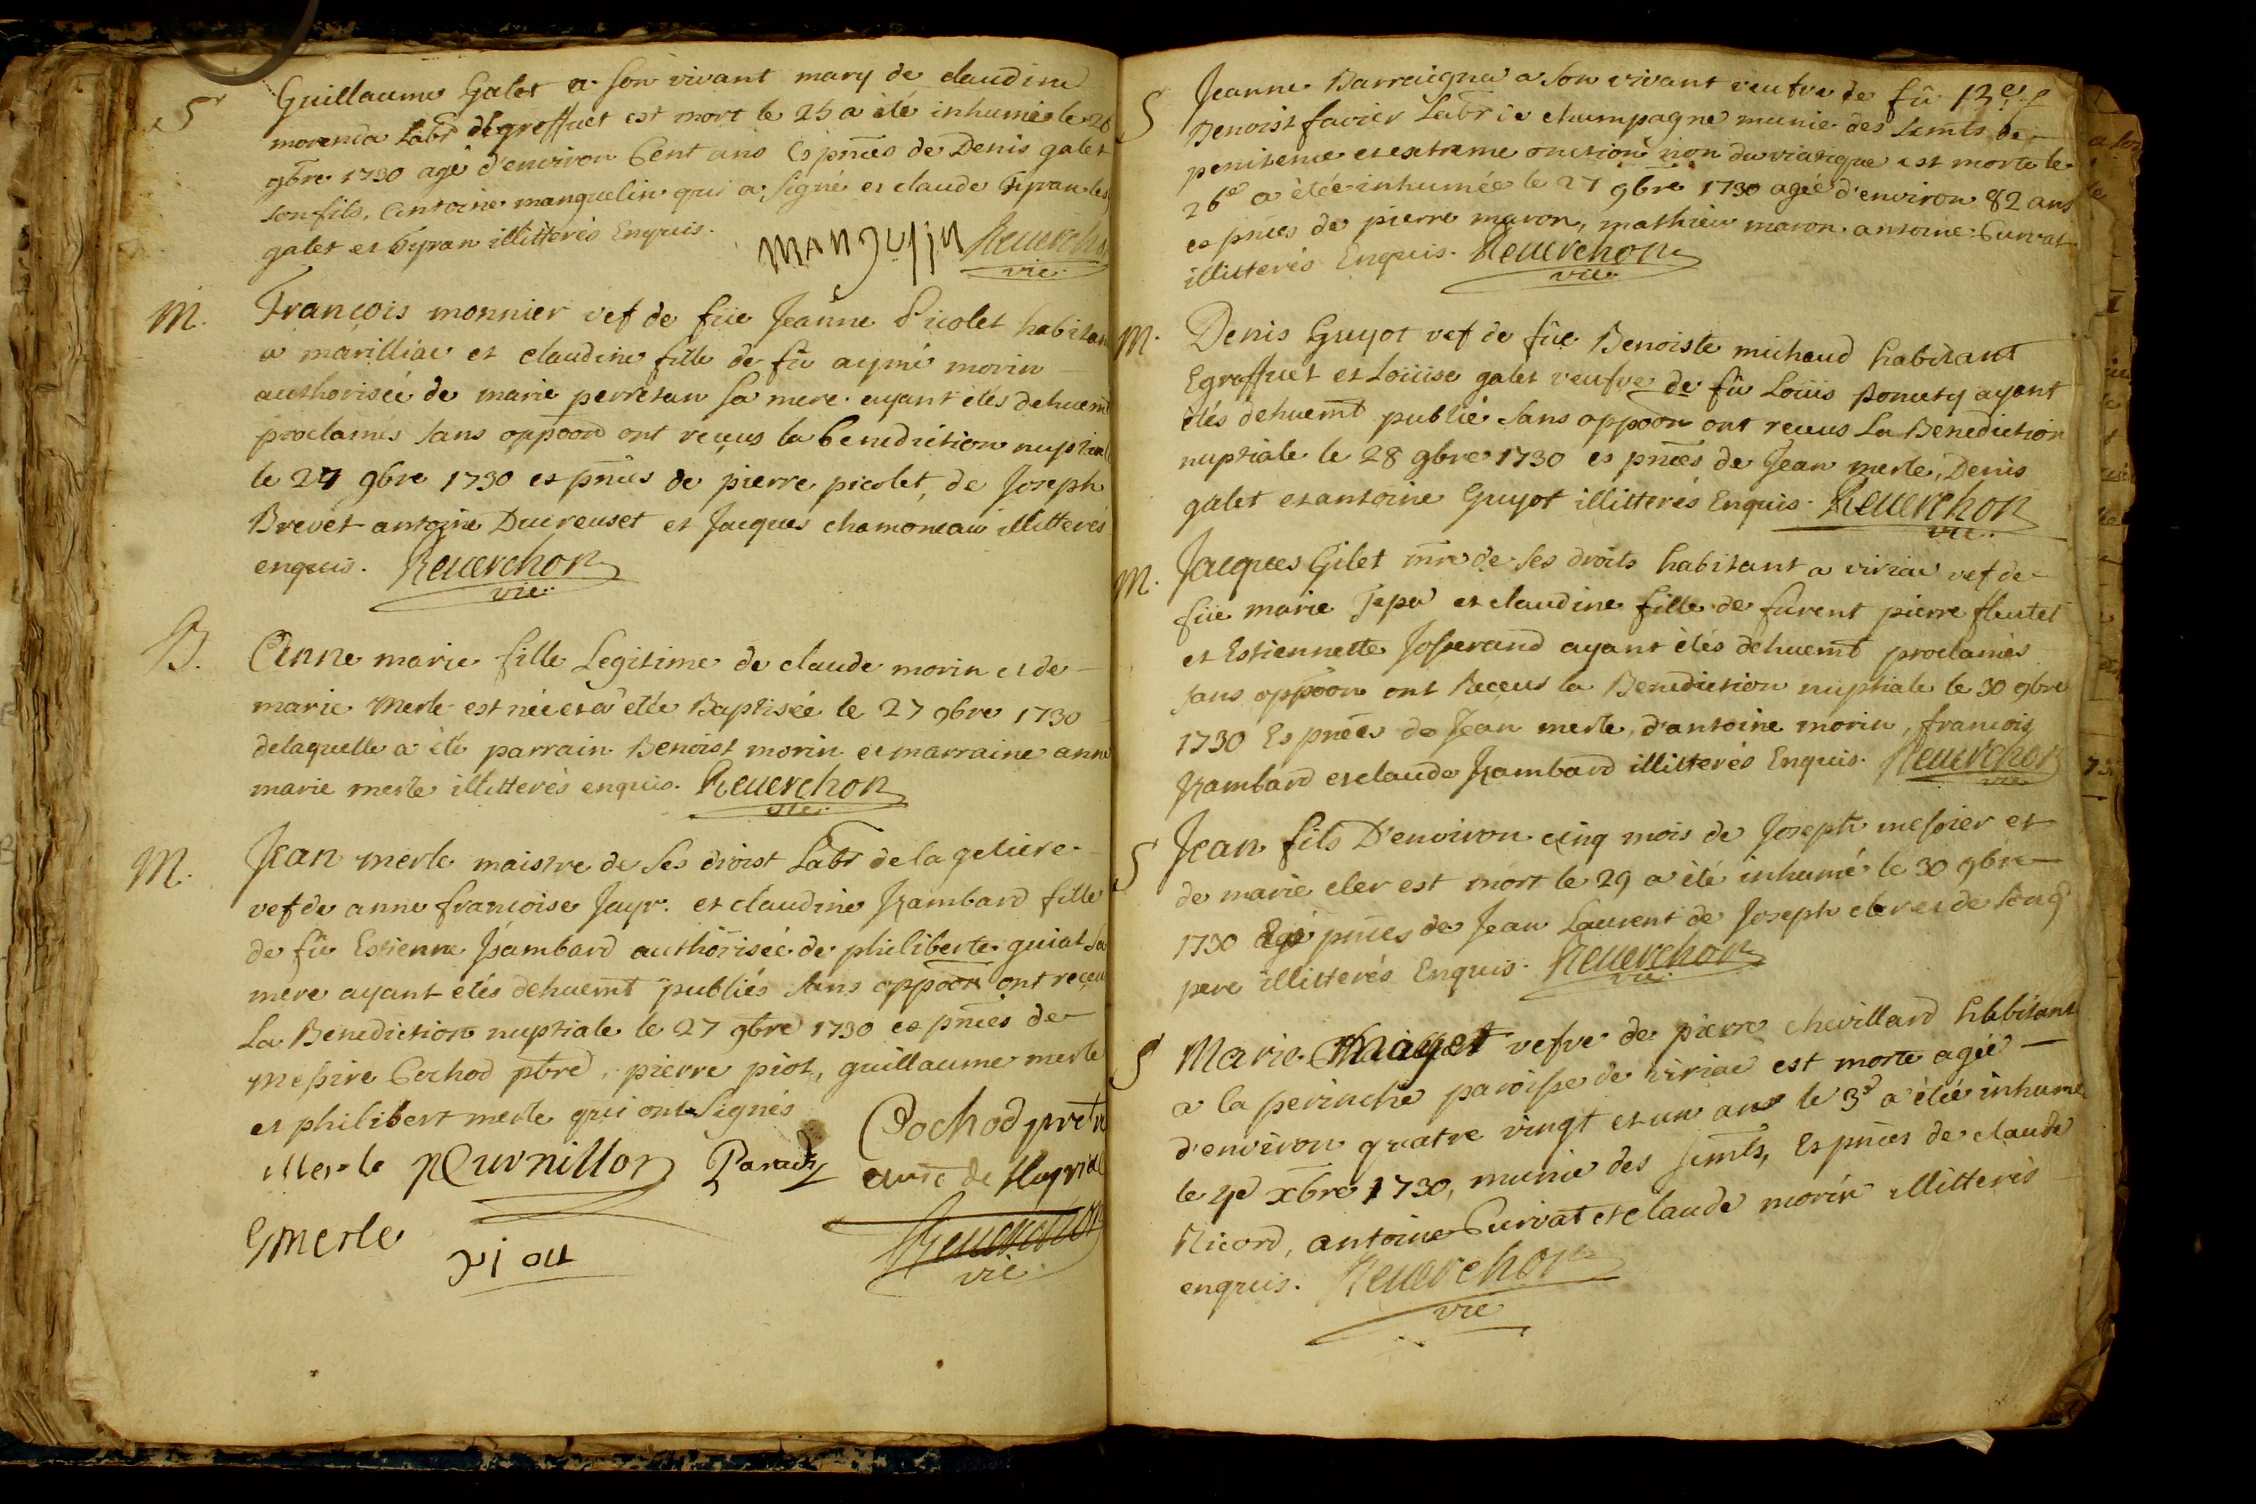 S Guillaume Galet a son vivant mary de claudine
morenda Labr dégreffuet est mort le 25 a été inhumé le 26
9bre 1730 agé d'environ Cent ans Es pnces de Denis galet
son fils, Antoine manguelin qui a signé et claude les
galet et illitterés Enquis.
Manguelin Reuerchon
vic.
M. François monnier vef de füe Jeanne Picolet habitan
a marilliac et claudine fille de fü aymé morin
authorisée de marie perretan sa mere ayant étés dehuemt
proclamés sans oppoon ont reçeus la benediction nuptiale
le 27 9bre 1730 es pnces de pierre picolet, de Joseph
Brevet antoine Ducreuset et Jacques chamoneau illitterés
enquis. Reuerchon
vic.
B. Anne marie fille Legitime de claude morin et de
marie Merle est née et a étée Baptisée le 27 9bre 1730
de laquelle a été parrain Benoist morin et marraine anne
marie merle illitterés enquis. Reuerchon
vic.
M. Jean merle maistre de ses droist Labr de la geliere
vef de anne françoise Jayr. et claudine Rambard fille
de fü Estienne Rambard authorisée de philiberte guiat sa
mere ayant étés dehuemt publiés sans oppoon ont reçeu
La Benediction nuptiale le 27 9bre 1730 es pnces de
Messire Cochod ptre, pierre piot, guillaume merle
et philibert merle qui ont signés
Merle Curnillon Paradz Cochod pretre
curé de
Gmerle piou Reuerchon
vic.
S Jeanne Barraigna a son vivant veufve de fü
Benoist favier Labr de champagne munie des scmts de
penitence et extreme onction non du viatique est morte le
26e a étée inhumée le 27 9bre 1730 agée d'environ 82 ans
es pnces de pierre maron, mathieu maron antoine Curvat
illitterés Enquis. Reuerchon
vic.
M. Denis Guyot vef de füe Benoiste michaud habitant
Egreffuet et Loüise galet veufve de fü Loüis Poncety ayant
étés dehuemt publié sans oppoon ont receus La Benediction
nuptiale le 28 9bre 1730 es pnces de Jean merle, Denis
galet et antoine Guyot illitterés Enquis. Reuerchon
vic.
M. Jacques Gilet mre de ses droits habitant a viriac vef de
füe marie et claudine fille de furent pierre fleutet
et Estiennette Josserand ayant étés dehuemt proclamés
sans oppoon ont Receus la Benediction nuptiale le 30 9bre
1730 Es pnces de Jean merle, d'antoine morin, françois
Rambard et claude Rambard illitterés Enquis. Reuerchon
vic
S Jean fils D'environ cinq mois de Joseph messier et
de marie cler est mort le 29 a été inhumé le 30 9bre
1730 Es pnces de Jean Laurent de Joseph cler et de son
pere illitterés Enquis. Reuerchon
vic
S Marie Mayet vefve de pierre chevillard habitant
a la perinche paroisse de viriac est morte agée
d'environ quatre vingt et un ans le 3e a étée inhumé
le 4e xbre 1730, munie des scmts, Es pnces de claude
Ricord, antoine Curvat et claude morin illitterés
enquis. Reuerchon
vic